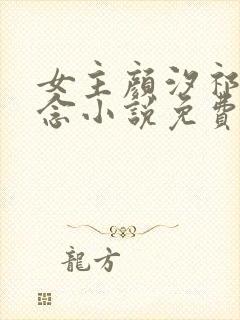 女主顔汐祁
念小説免費
龍方